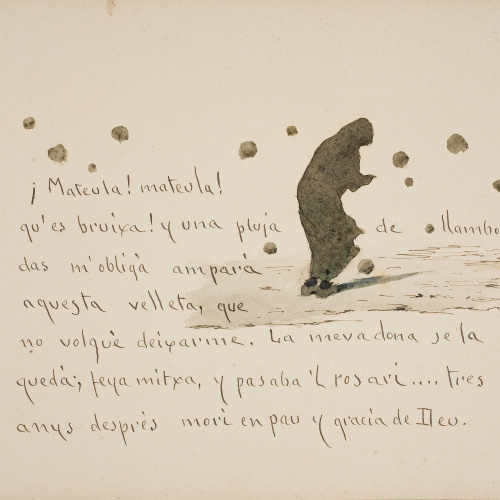 ¡Mateula! mateula!
qu'es bruixa! y una pluja de llambo
das m'obligà amparà
aquesta velleta, que
no volguè deixarme. La mevadona se la
quedà; feya mitxa, y pasaba 'l rosari.... tres
anys desprès morì en pau y gracia de Deu.